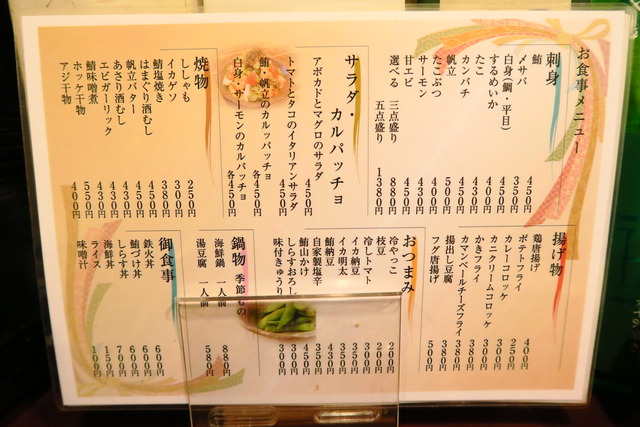 お食事メニュー
刺身
鮪 450円
〆サバ 350円
白身(鯛・平目) 450円
するめいか 400円
たこ 430円
カンパチ 450円
帆立 500円
サーモン 400円
甘エビ 450円
選べる 三点盛り 880円
五点盛り 1380円
サラダ・カルパッチョ
アボカドとマグロのサラダ 450円
トマトとタコのイタリアンサラダ 450円
鮪・帆立のカルッパッチョ 各450円
白身・サーモンのカルパッチョ 各450円
焼物
ししゃも 250円
イカゲソ 300円
鯖塩焼き 380円
はまぐり酒むし 450円
帆立バター 430円
あさり酒むし 430円
エビガーリック 450円
鯖味噌煮 430円
ホッケ干物 550円
アジ干物 400円
揚げ物
鶏唐揚げ 400円
ポテトフライ 250円
カレーコロッケ 300円
カニクリームコロッケ 300円
かきフライ 380円
カマンベールチーズフライ 380円
揚出し豆腐 380円
フグ唐揚げ 500円
おつまみ
冷やっこ 200円
枝豆 200円
冷しトマト 300円
イカ納豆 350円
イカ明太 350円
鮪納豆 430円
自家製塩辛 350円
鮪山かけ 450円
しらすおろし 300円
味付きゅうり 300円
鍋物 季節もの
海鮮鍋 一人前 880円
湯豆腐 一人前 580円
御食事
鉄火丼 600円
鮪づけ丼 600円
しらす丼 600円
海鮮丼 700円
ライス 150円
味噌汁 100円